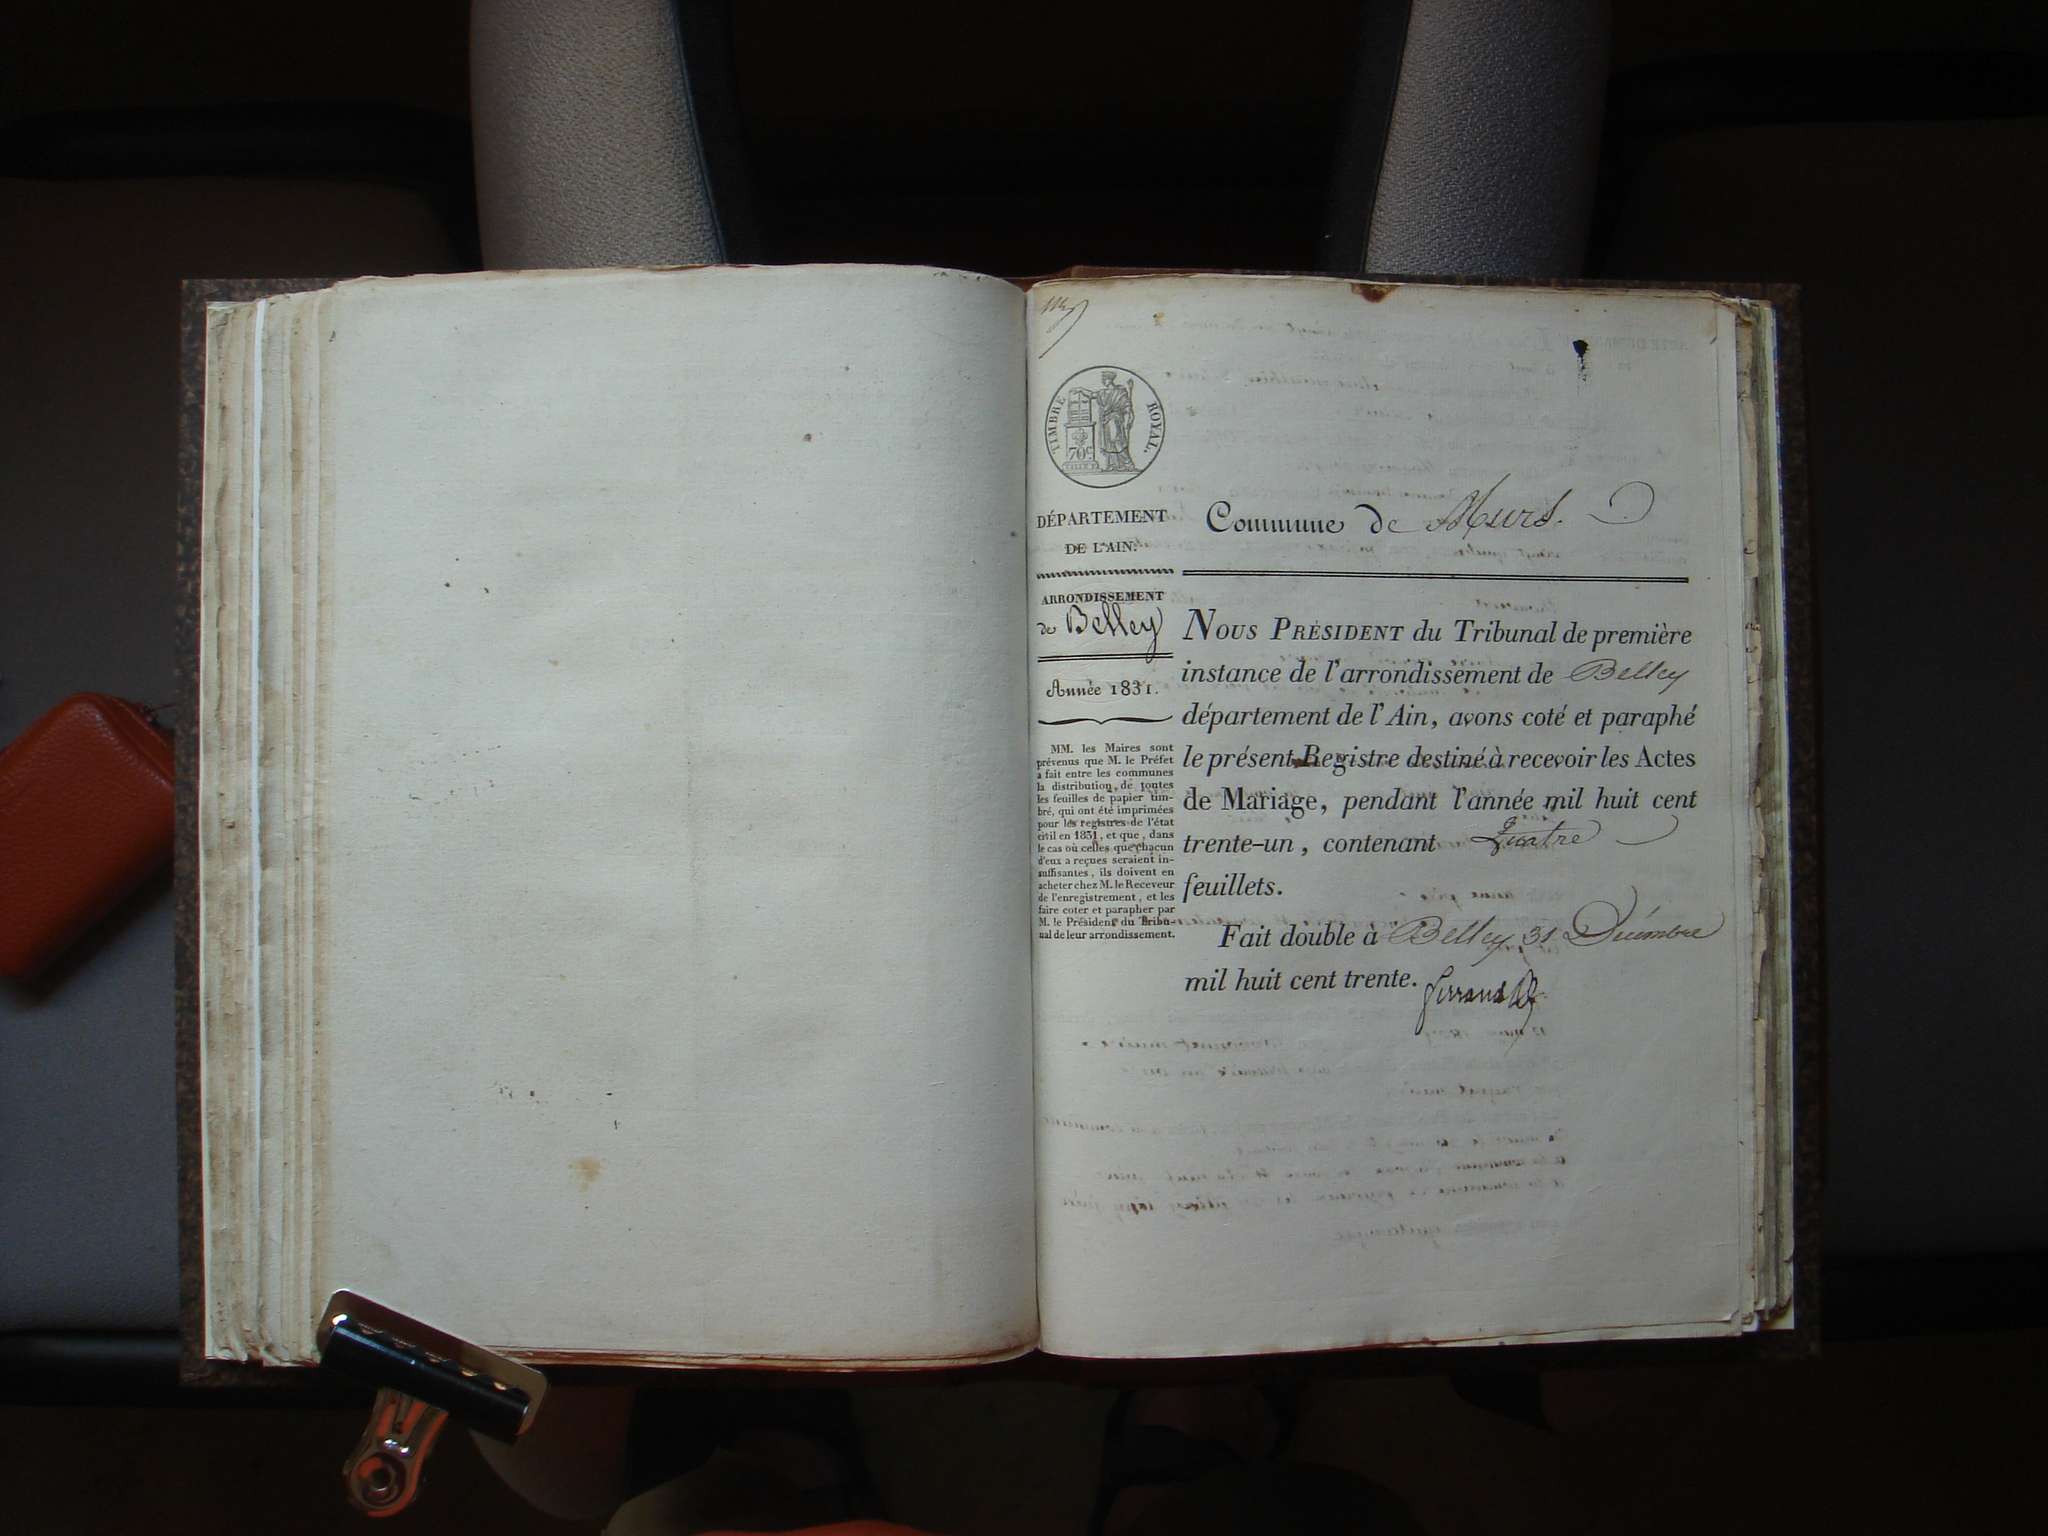 TIMBRE ROYAL.
70c
DÉPARTEMENT
DE L'AIN.
ARRONDISSEMENT
de Belley
Année 1831.
MM. les Maires sont
prévenus que M. le Préfet
a fait entre les communes
la distribution de toutes
les feuilles de papier tim-
bré, qui ont été imprimées
pour les registres de l'état
civil en 1831, et que, dans
le cas où celles que chacun
d'eux a reçues seraient in-
suffisantes, ils doivent en
acheter chez M. le Receveur
de l'enregistrement, et les
faire coter et parapher par
M. le Président du Tribu-
nal de leur arrondissement.
Commune de Murs.
NOUS PRÉSIDENT du Tribunal de première
instance de l'arrondissement de Belley
département de l'Ain, avons coté et paraphé
le présent Registre destiné à recevoir les Actes
de Mariage, pendant l'année mil huit cent
trente-un, contenant Quatre
feuillets.
Fait double à Belley 31 Décembre
mil huit cent trente.